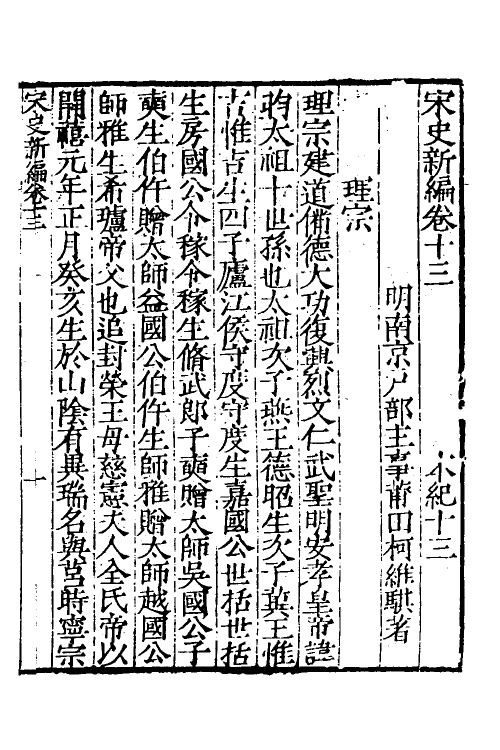 宋史新編卷十三　本紀十三
明南京戶部主事莆田柯維騏著
理宗
理宗建道備德大功復興烈文仁武聖明安孝皇帝諱
昀太祖十世孫也太祖次子燕王德昭生次子冀王惟
吉惟吉生四子廬江侯守度守度生嘉國公世括世括
生房國公令稼令稼生脩武郎子奭贈太師吳國公子
奭生伯仵贈太師益國公伯仵生師雅贈太師越國公
師雅生希瓐帝父也追封榮王母慈憲夫人全氏帝以
開禧元年正月癸亥生於山陰有異瑞名與莒時寧宗
宋史新編卷十三　一